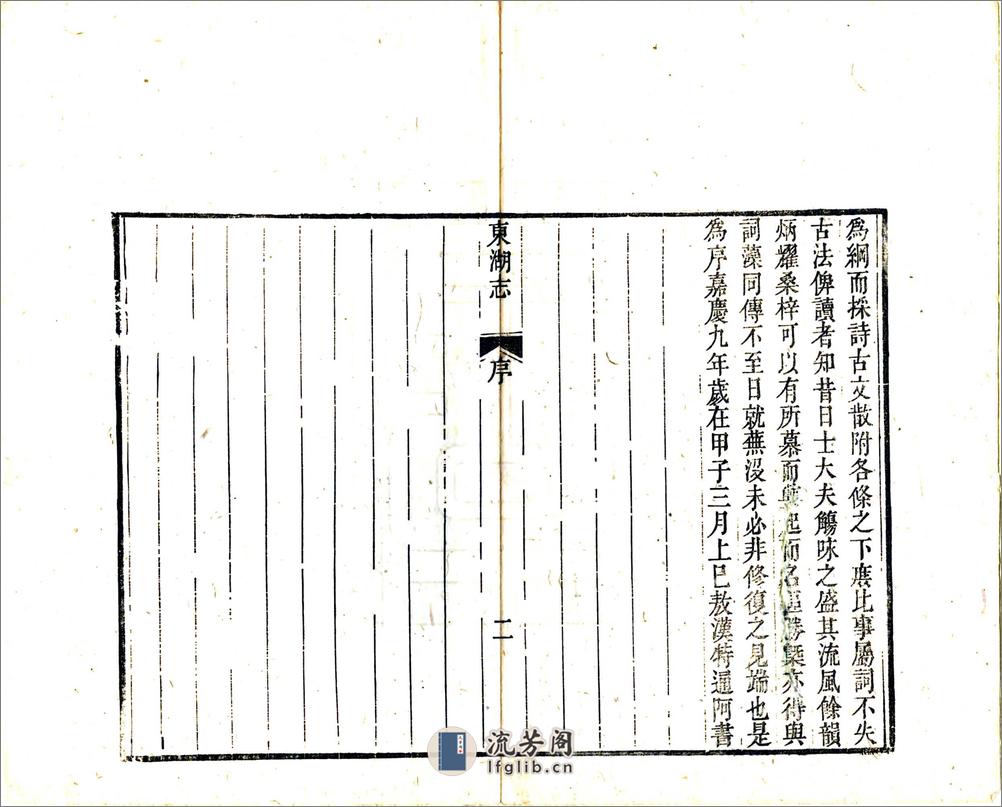 為綱而採詩古文散附各條之下庶比事屬詞不失
古法俾讀者知昔日士大夫觴咏之盛其流風餘韻
炳耀桑梓可以有所慕而興起而名區勝槩亦得與
詞藻同傳不至日就蕪沒未必非修復之見端也是
為序嘉慶九年歲在甲子三月上巳敖漢特通阿書
東湖志
序
二
流芳阁
lfglib.cn